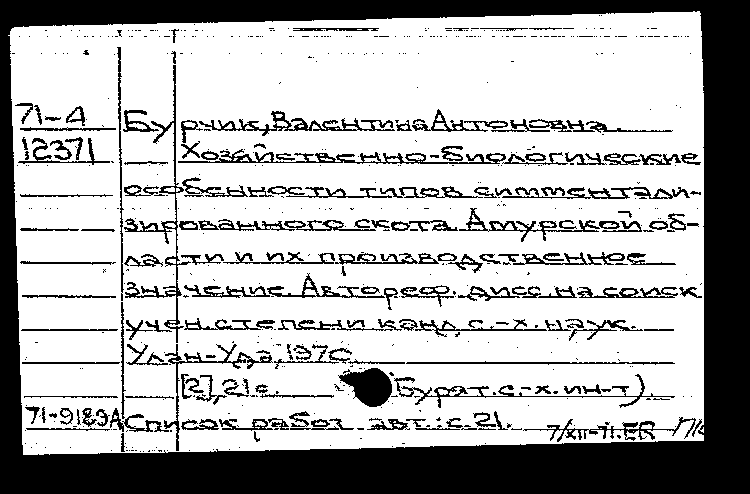 71-4 Бурчик, Валентина Антоновна.
12371 Хозяйственно-биологические
особенности типов симментали-
зированного скота Амурской об-
ласти и их производственное
значение. Автореф. дисс. на соиск
учен. степени канд. с.-х. наук.
Улан-Удэ, 1970.
[2], 21 с. (Бурят. с.-х. ин-т).
71-9189А Список работ авт.: с. 21.
7/XII-71. ER